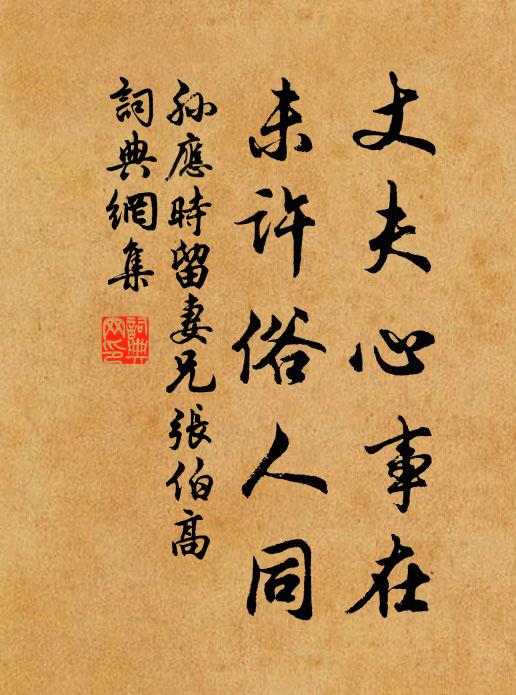 丈夫心事在
未許俗人同
孫應時留妻兄張伯高
詞典網集
詞典網印